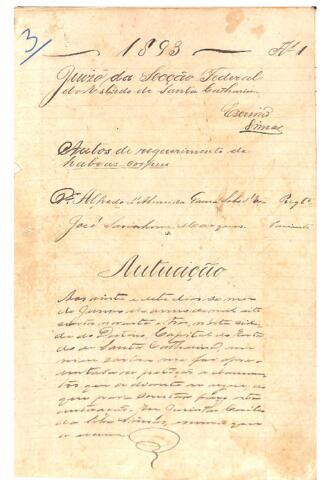 3/
1893 Fl 1
Juizo da Secção Federal
do Estado de Santa Catharina
Escrivão
Simas
Autos de requerimento de
habeas-corpus
Dr. Alfredo
José Marques Paciente
Autuação
Aos vinte e sete dias do mez
de Junho do anno de mil oito
centos noventa e tres, nesta cida
de do Desterro Capital do Esta
do de Santa Catharina, em
meu cartorio me foi apre
sentada a petição e documen
tos que a diante se seguem, do
que para constar faço esta
autuação. Eu
da Silva Simas, escrivão que
o escrevi